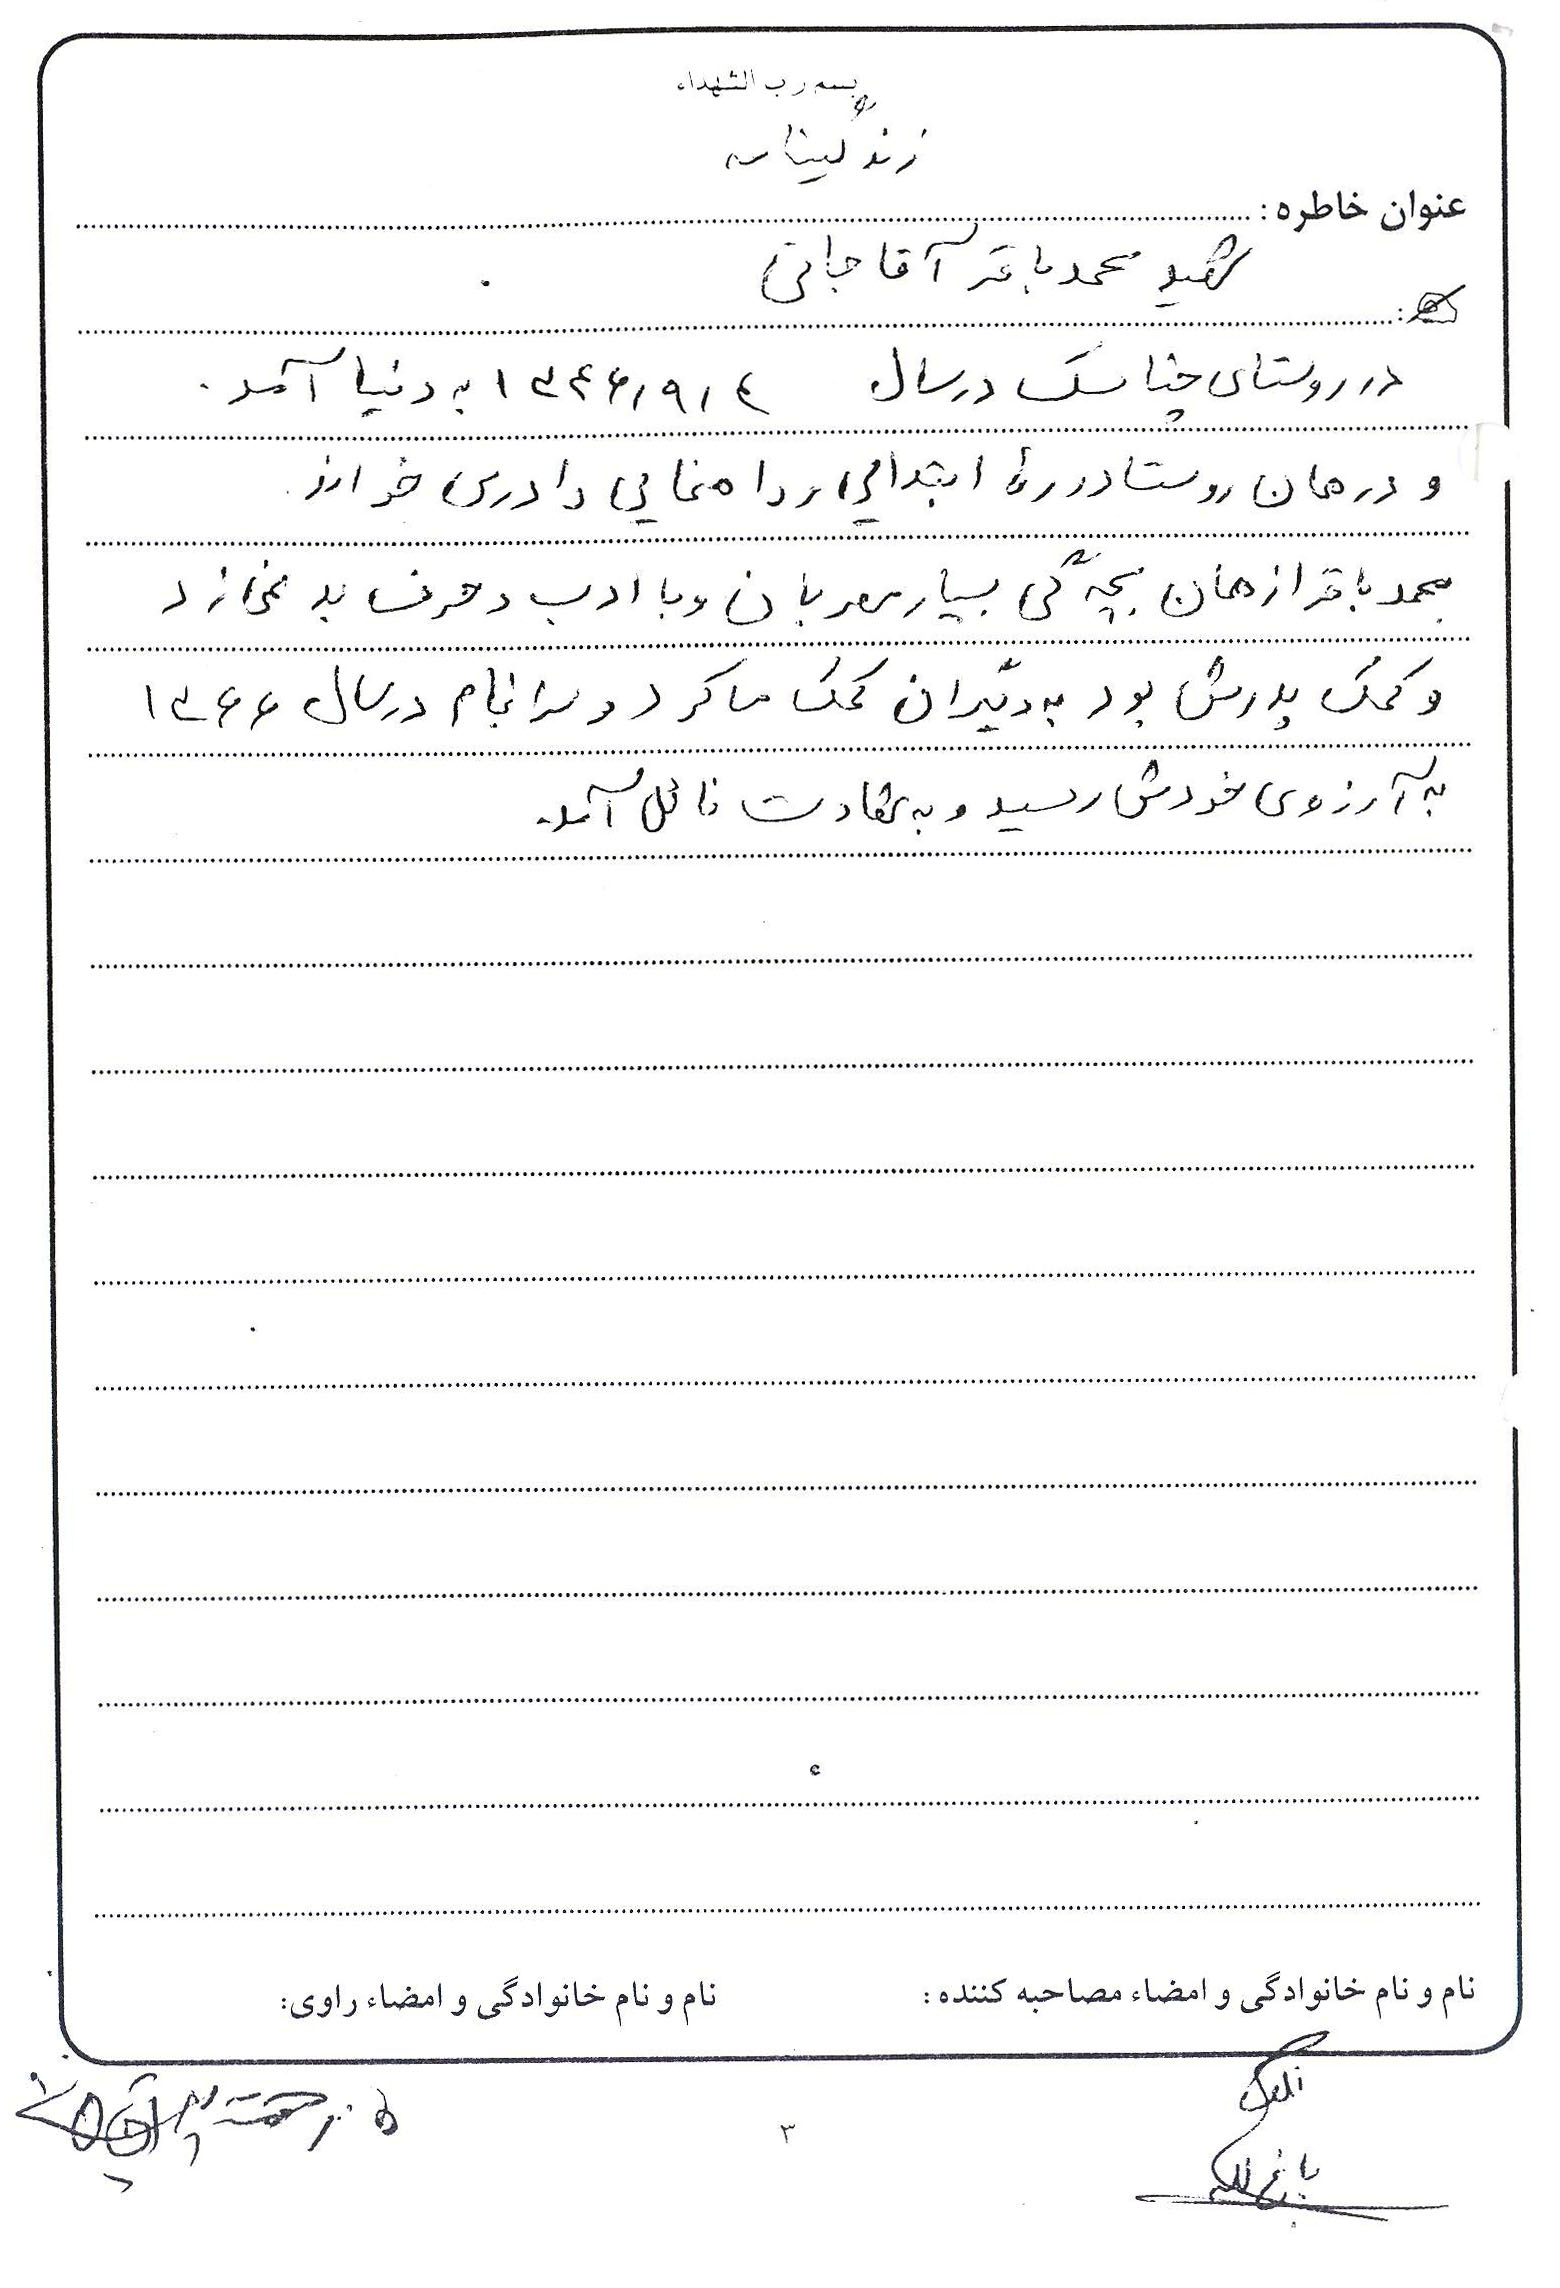 بسم رب الشهداء
زندگینامه
عنوان خاطره :
شهید محمد باقر آقاجانی
در روستای چناسک در سال ۱۳۴۶/۹/۴ به دنیا آمد.
و در همان روستا دوره ابتدایی و راهنمایی را درس خواند
محمد باقر از همان بچه گی بسیار مهربان و با ادب و حرف بد نمی زد
و کمک پدرش بود به دیگران کمک ما کرد و سرانجام در سال ۱۳۶۶
به آرزوی خودش رسید و به شهادت نائل آمد.
نام و نام خانوادگی و امضاء مصاحبه کننده :
نام و نام خانوادگی و امضاء راوی:
۳